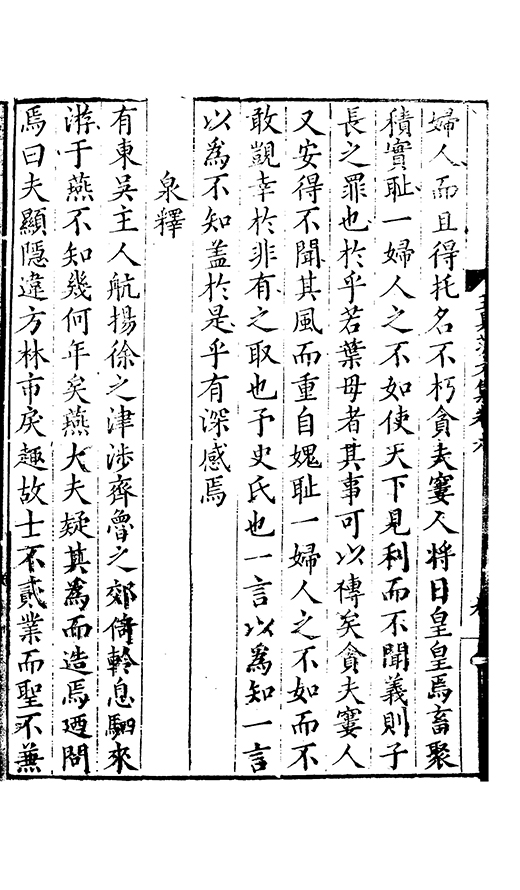 婦人而且得托名不朽貪夫窶人將日皇皇焉畜聚
積實耻一婦人之不如使天下見利而不聞義則子
長之罪也於乎若葉母者其事可以傳矣貪夫窶人
又安得不聞其風而重自媿耻一婦人之不如而不
敢覬幸於非有之取也予史氏也一言以為知一言
以為不知盖於是乎有深感焉
泉釋
有東吳主人航揚徐之津涉齊魯之郊倚軨息駟來
游于燕不知幾何年矣燕大夫疑其為而造焉廼問
焉曰夫顯隱違方林市戾趣故士不貳業而聖不兼